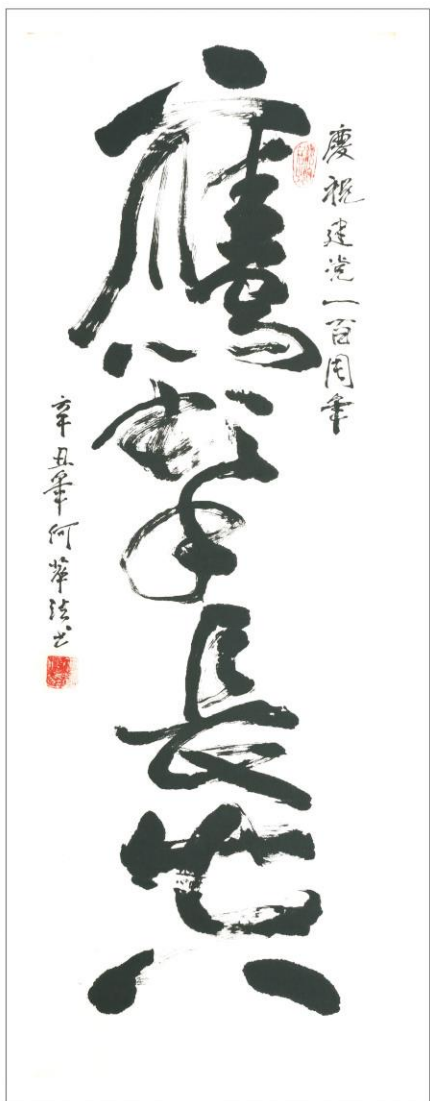 慶祝建党一百周年
鷹擊長空
辛丑年何華法书